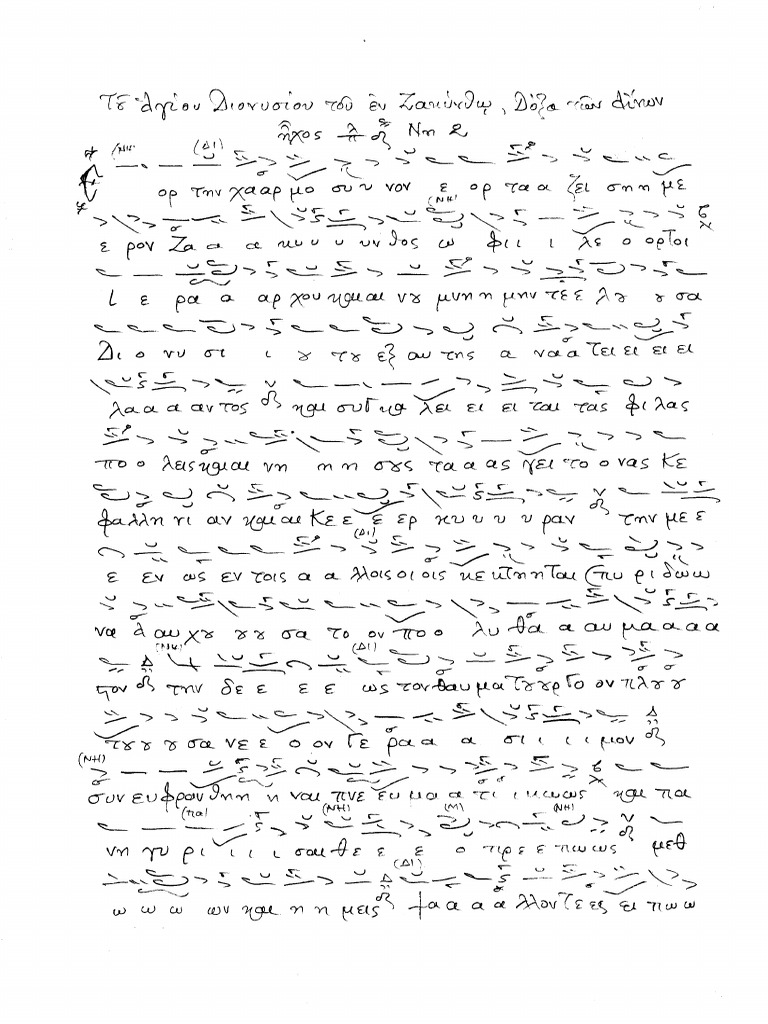 Τȣ̃ Ἁγίου Διονυσίου τοῦ ἐν Ζακύνθῳ, Δόξα τῶν Αἴνων
ἦχος πλ δ Νη
(ΝΗ) (Δι)
ορ την χα αρ μο συ υ νον ε ορ τα α ζει ση η με
(ΝΗ)
ε ρον Ζα α α κυ υ υ υνθος ω φι ι ι λε ο ορτοι
ι ε ρα α αρ χου και αι νȣ μνη η μην τε ε λȣ ȣ σα
Δι ο νυ σι ι ȣ τȣ εξ αυ της α να α τει ει ει ει
λα α α αντος και συγκα λει ει ει ται τας φι λας
πο ο λεις και αι νη η η σȣς τα α ας γει το ο νας Κε
φαλλη νι αν και αι Κε ε ε ερ κυ υ υ υ ραν την με ε
(Δι)
ε εν ως εν τοις α α λλοις οι οις κε κτη η ται σπυ ρι δω ω
να α αυ χȣ ȣ ȣ σα το ον πο ο λυ θα α αυ μα α α α
(ΝΗ) (Δι)
τον την δε ε ε ε ως τον θαυ μα τȣ ȣργο ον πλȣ ȣ
τȣ ȣ ȣ σα νε ε ο ον Γε ρα α α α σι ι ι ι μον
(ΝΗ)
συν ευ φραν θη η η ναι πνε ευ μα α τι ι κω ως και πα
(πα) (ΝΗ) (ΝΗ)
νη γυ ρι ι ι ι σαι θε ε ε ο πρε ε πω ως μεθ
(Δι)
ω ω ω ων και η η μεις ψα α α α λλοντε ες ει πω ω